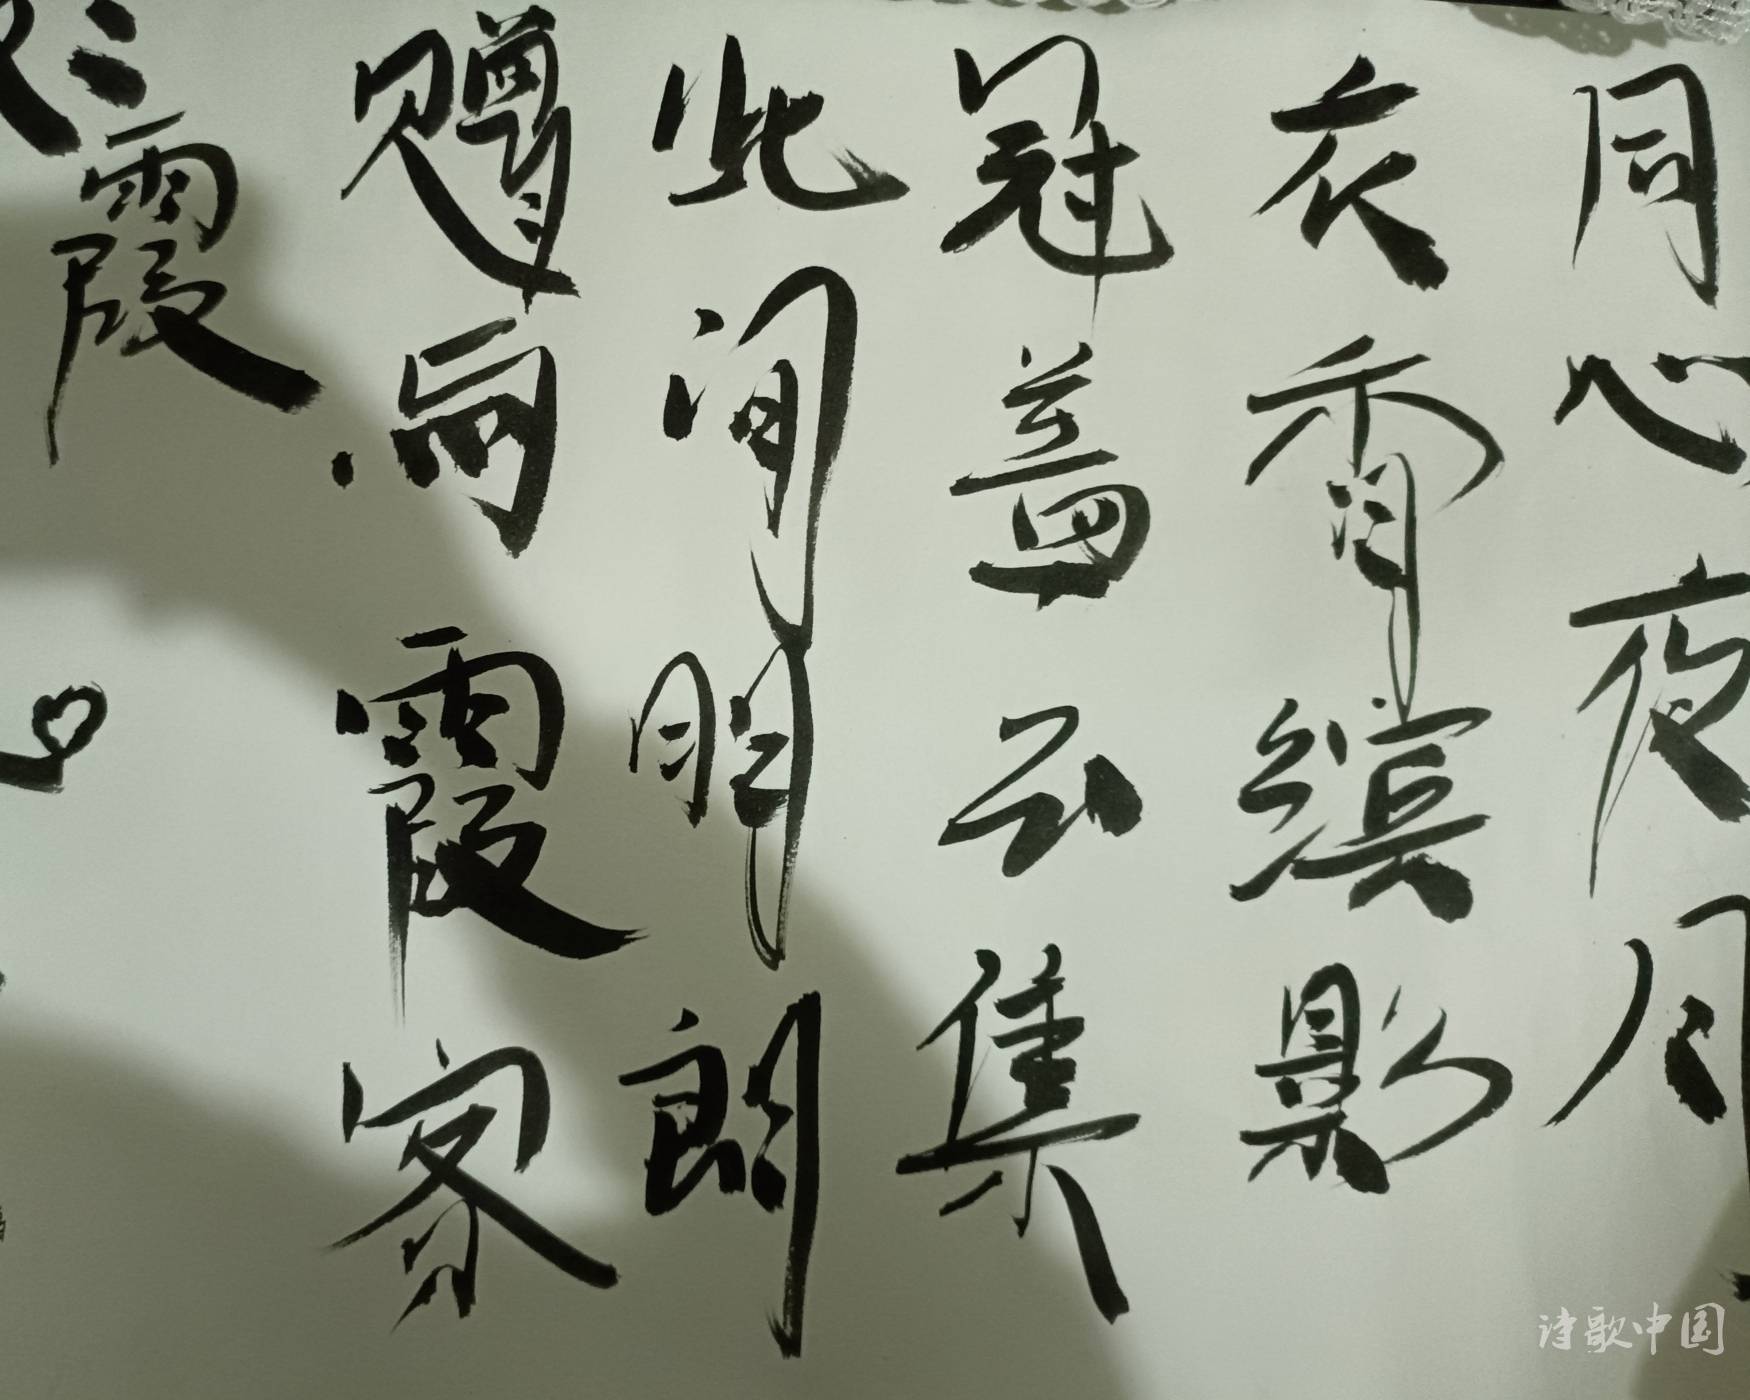 同心夜月
衣香缤影
冠盖云集
此间明朗
赠尔霞客
霞
诗歌中国